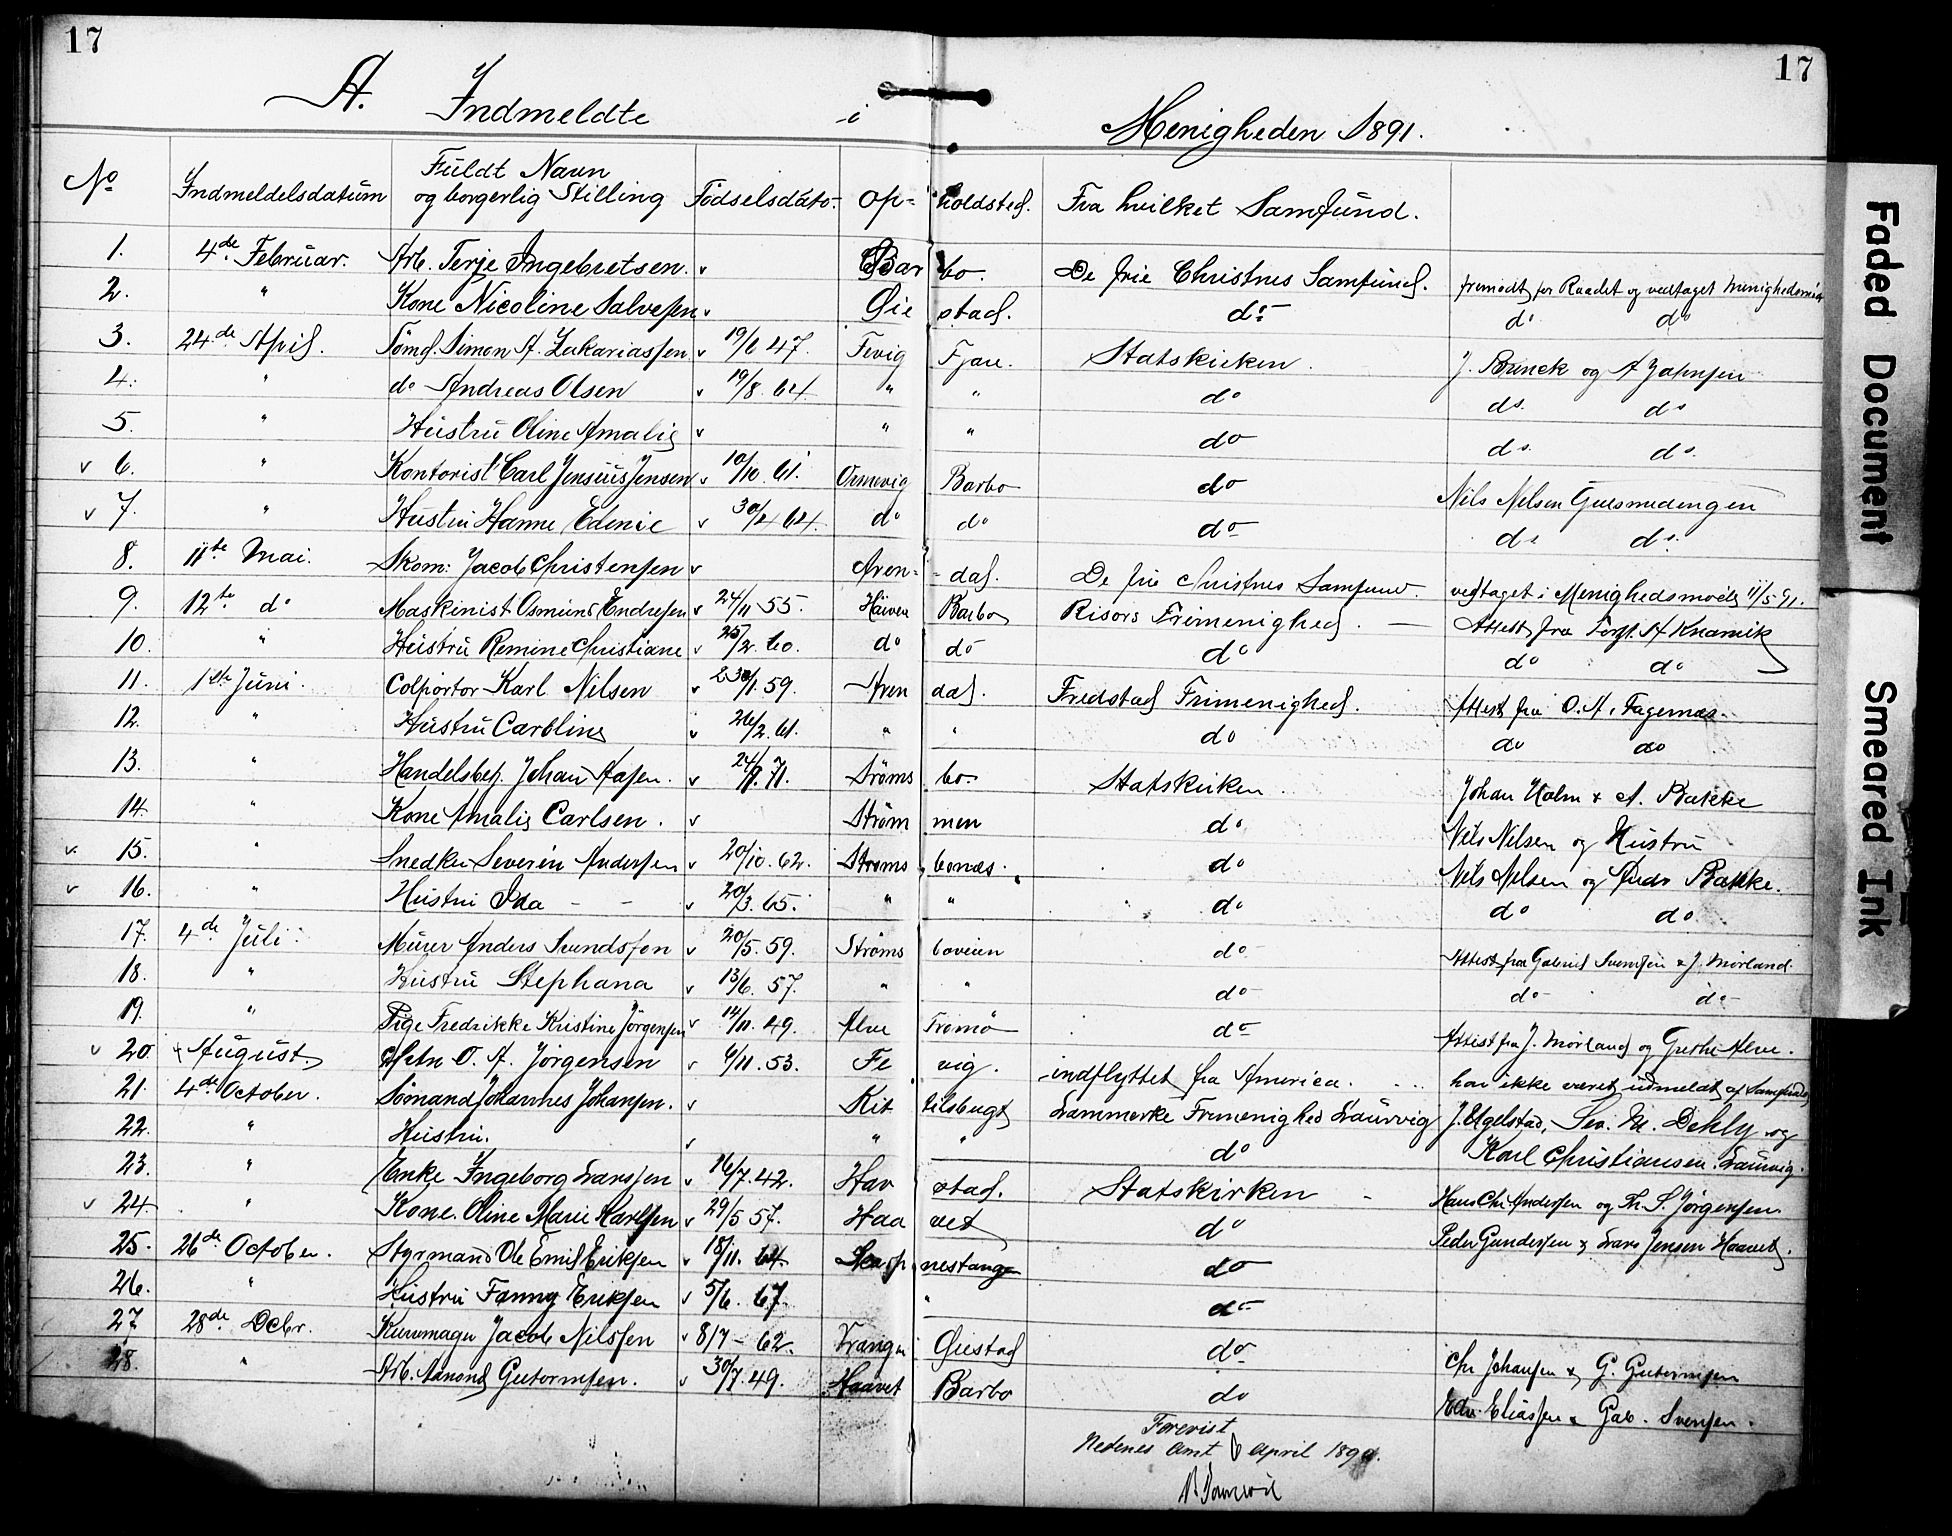 17 17
A. Indmeldte i Menigheden 1891.
No Indmeldelsdatum Fuldt Navn og borgerlig Stilling Födselsdato. Op= holdsted. Fra hvilket Samfund.
1. 4de Februar. Arb. Terje Ingebretsen. v Bar bo. De frie Christnes Samfund. fremödt for Raadet og vedtaget
2. " Kone Nicoline Salvesen v Øie stad. do do do
3. 24de April. Tömd. Simon A. Zakariassen v 19/6 47. Fevig Fjære. Statskirken. J. Brinck og A Jahnsen
4. " do Andreas Olsen v 19/8. 64 " " do do. do
5. " Hustru Oline Amalie v " " do do. do.
v 6. " Kontorist Carl Jensius Jensen v 10/10. 61. Ormevig Barbo do Nils Nelsen
v 7. " Hustru Hanne Edenie v 30/4 64. do do do do do
8. 11te Mai. Skom: Jacob Christensen v Aren= =dal. De frie Christnes Samfund. vedtaget i Menighedsmöde 11/5 91.
9. 12te do Maskinist Osmund Endresen v 24/11 55. Haven Barbo Risörs Frimenighed. — Attest fra Forst. A Knarvik
10. " Hustru Remine Christiane v 25/2. 60. do do do do do
11. 1ste Juni. Colportör Karl Nilsen v 30/1. 59. Aren dal. Fredstad Frimenighed. Attest fra O. A. Fagernæs.
12. " Hustru Caroline v 26/2. 61. " " do do do
13. " Handelsbef. Johan Aasen. v 71. Ströms bo. Statskirken. Johan Holm & A. Bakke
14. " Kone Amalie Carlsen. v Ströms men do Nils Nelsen og Hustru
v 15. " Snedker Severin Andersen v 20/10. 62. Ströms bonæs. do Nils Nelsen og Andr Bakke.
v 16. " Hustru Ida - - v 20/3. 65. " " do do do
17. 4de Juli. Murer Anders Svendsson v 20/5. 59. Ströms boveien do Attest fra Gabriel Svensen & J. Mörland.
18. " Hustru Stephana v 13/6. 57. " " do do do
19. " Pige Fredrikke Kristine Jörgensen v 14/11. 49. Alve Tromö do Attest fra J. Mörland og Grethe Alve.
v 20. August. O. A. Jörgensen v 6/11. 53. Fe vig. indflyttet fra America. har ikke været udmeldt af Samfundet
21. 4de October. Sömand Johannes Johansen. v Kit telsbugt Lammerke Frimenighed Laurvig J. Ugelstad, Sev. M. Dehly og
22. " Hustru. v " " do Karl Christiansen. Laurvig.
23. " Enke Ingeborg Larssen v 16/7. 42. Hav stad. Statskirken - Hans Chr. Andersen og Th. S. Jörgensen
v 24. " Kone. Oline Marie Karlsen v 29/5 57. Haa vet do Peder Gundersen & Lars Jensen Haavet.
25. 26de October. Styrmand Ole Emil Eriksen v 18/11. 64. nestangen do
26. " Hustru Fanny Eriksen v 5/6. 67. " do
27 28de Decbr. Kurvmager Jacob Nilssen v 8/7 - 62. Vrangen Øiestad do Chr Johansen & G. Gutormsen
28. " Arb. Aanond Gutormsen. v 30/7. 49. Haavet Barbo do Edv. Eliassen & Gab. Svensen.
Forevist
Nedenes Amt 6 April 189
Faded Document Smeared Ink